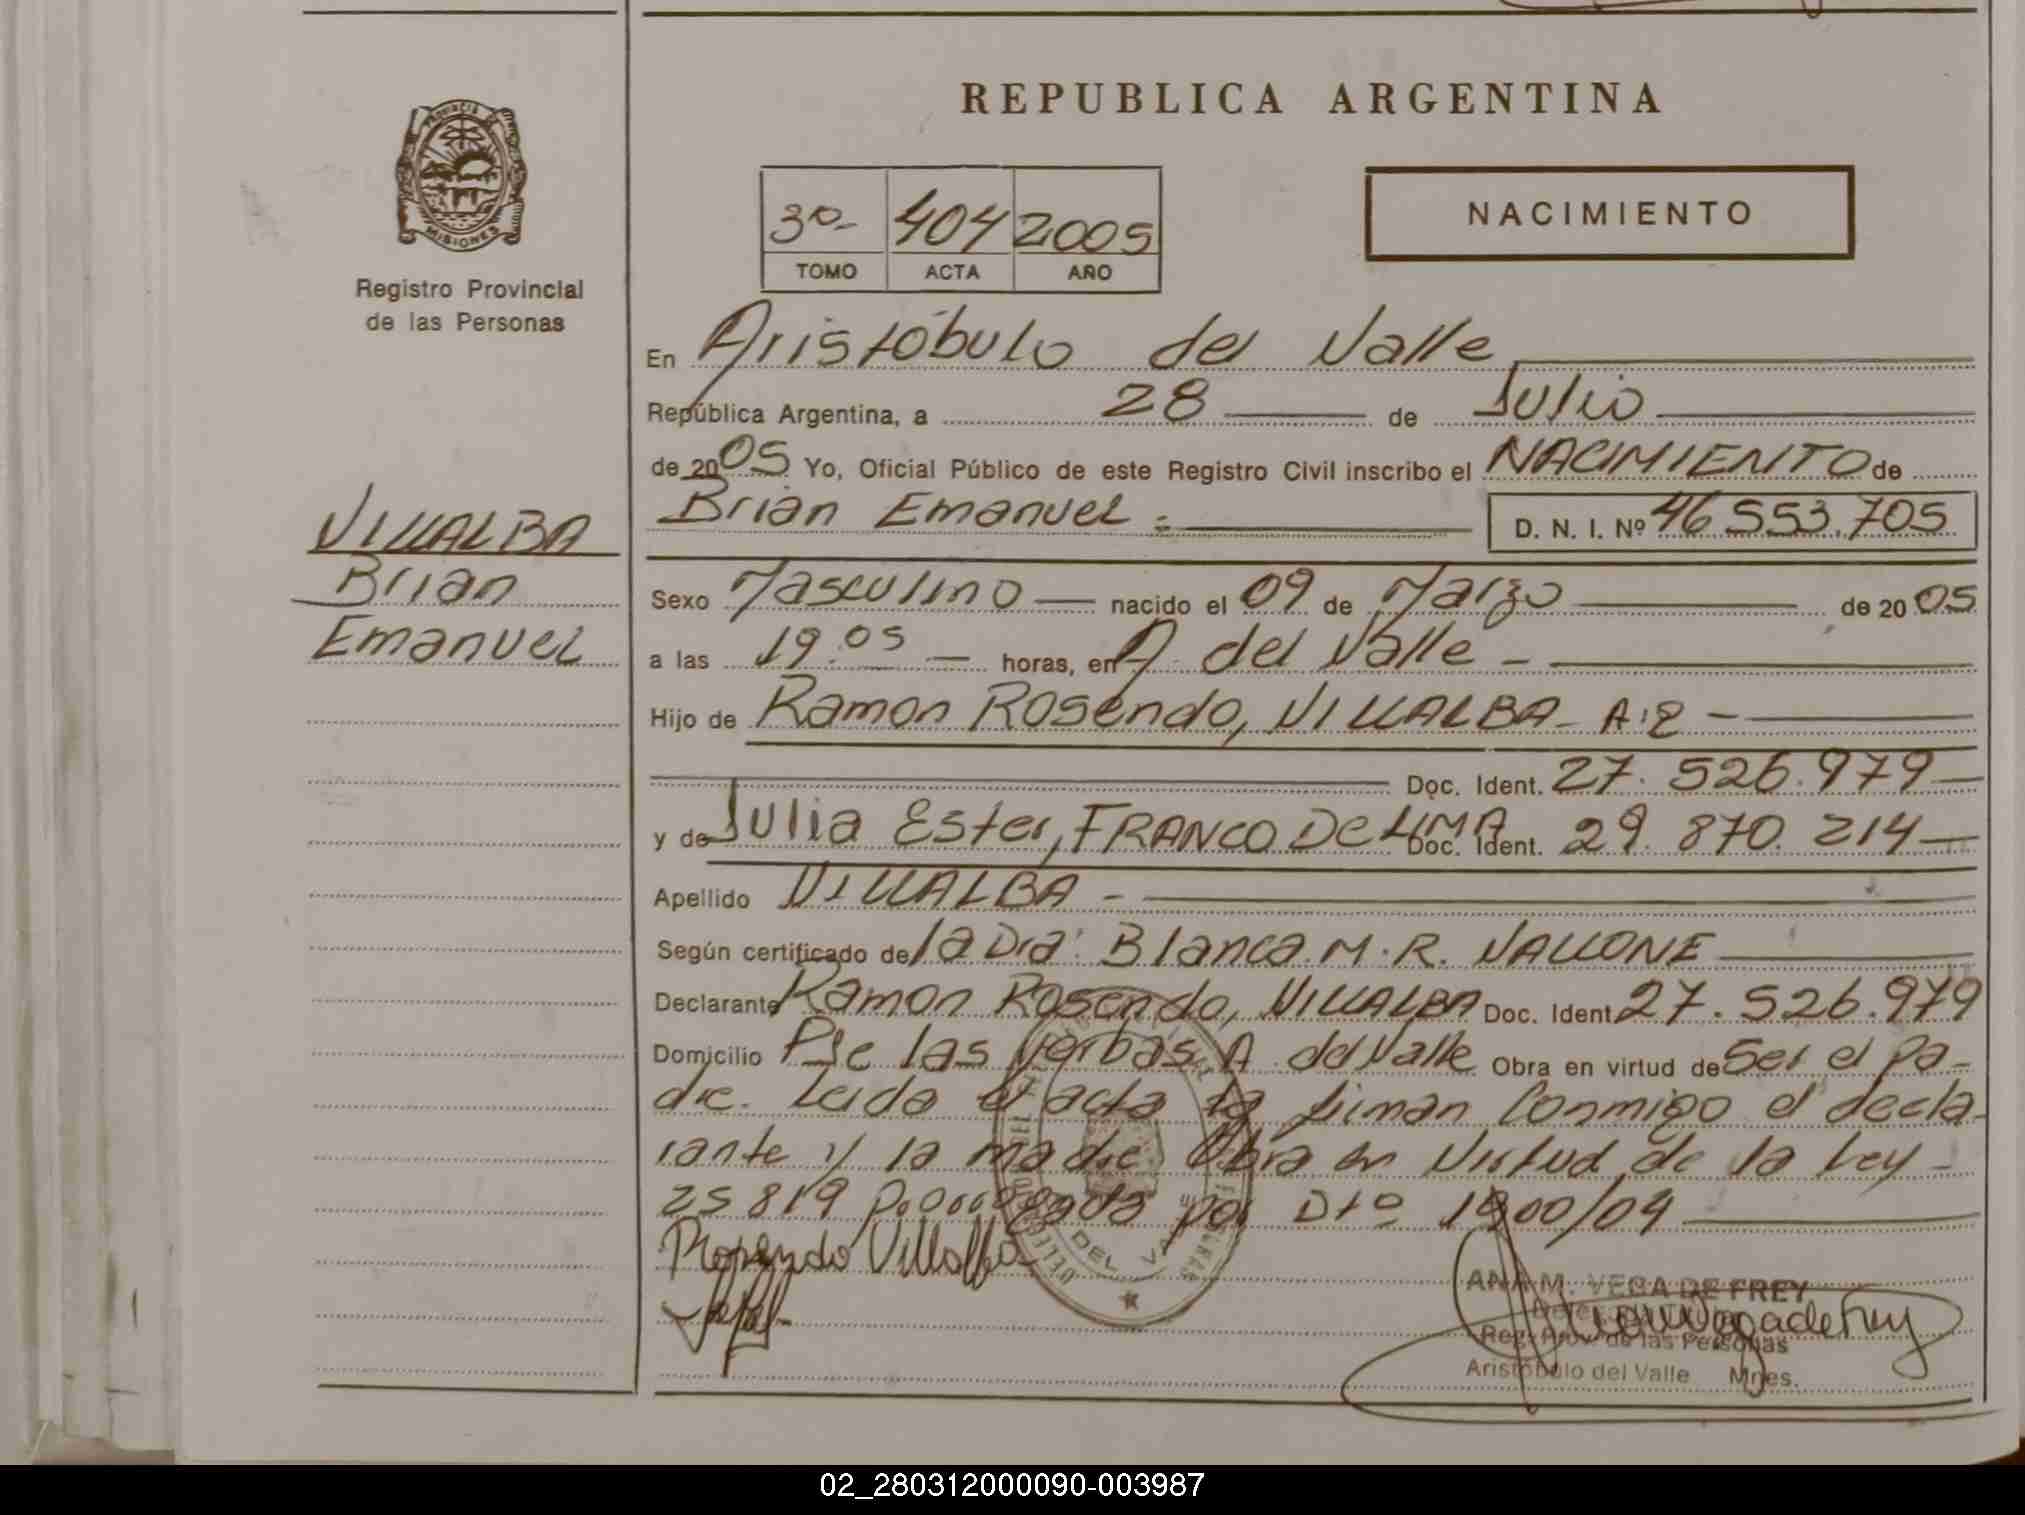 REPUBLICA ARGENTINA
PROVINCIA DE
MISIONES
Registro Provincial
de las Personas
3º- 404 2005
TOMO ACTA AÑO
NACIMIENTO
En Aristóbulo del Valle
República Argentina, a 28 de Julio
de 2005 Yo, Oficial Público de este Registro Civil inscribo el NACIMIENTO de
Brian Emanuel D. N. I. Nº 46.553.705
VILLALBA
Brian
Emanuel
Sexo Masculino nacido el 09 de Marzo de 2005
a las 19:05 horas, en A. del Valle
Hijo de Ramon Rosendo, VILLALBA
Doc. Ident. 27.526.979
y de Julia Ester, FRANCO DE LIMA Doc. Ident. 29.870.214
Apellido VILLALBA
Según certificado de la Dra. Blanca M. R. VALLONE
Declarante Ramon Rosendo, VILLALBA Doc. Ident. 27.526.979
Domicilio Pje las Yerbas A. del Valle Obra en virtud de Ser el pa-
dre. Leida el acta la firman Conmigo el decla-
rante y la madre Obra en Virtud de la Ley
25819 por Dto 1900/04
Rosendo Villalba
DEL VALLE
ANA M. VEGA DE FREY
Reg. Prov. de las Personas
Aristóbulo del Valle Mnes.
02_280312000090-003987